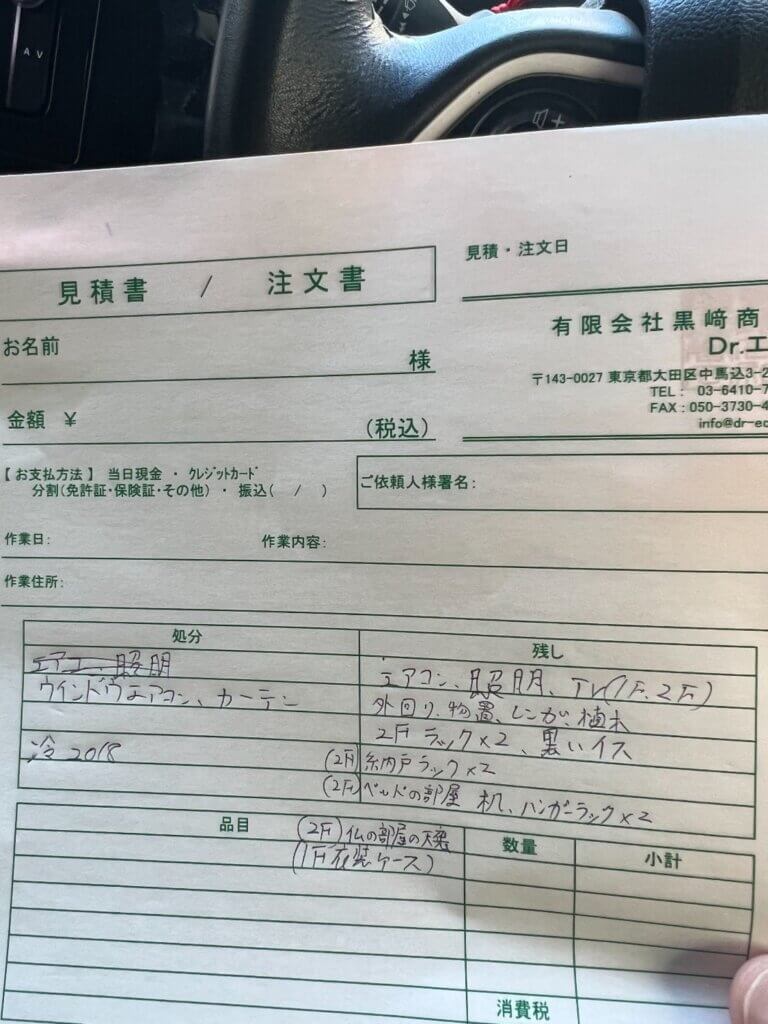 A V
+
見積書 / 注文書
見積・注文日
有限会社黒﨑商
Dr.エ
お名前
様
〒143-0027 東京都大田区中馬込3-2
TEL: 03-6410-7
FAX:050-3730-4
info@dr-ec
金額 ¥
(税込)
【お支払方法】 当日現金 ・ クレジットカード
分割(免許証・保険証・その他) ・ 振込( / )
ご依頼人様署名:
作業日:
作業内容:
作業住所:
処分
残し
エアコン、照明
ウインドウエアコン、カーテン
冷 2018
エアコン、照明、TV(1F、2F)
外回り、物置、レンガ、植木
2F ラック×2、黒いイス
(2F) 納戸ラック×2
(2F) ベッドの部屋 机、ハンガーラック×2
品目
数量
小計
(2F) 仏の部屋の
(1F衣装ケース)
消費税